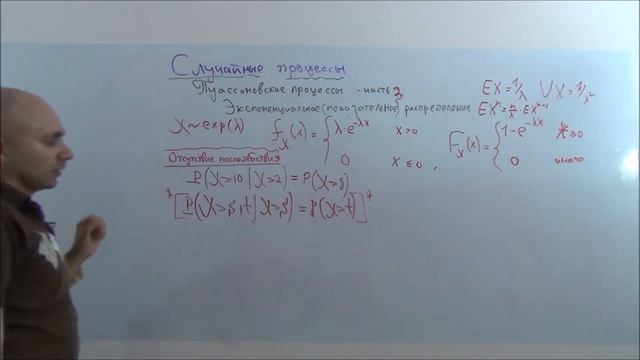 Случайные процессы
Пуассоновские процессы - часть 3
EX = 1/λ VX = 1/λ²
Экспоненциальное (показательное) распределение EXⁿ = n/λ · EXⁿ⁻¹
X ~ exp(λ) f_X(x) = { λ·e^{-λx} x > 0
0 x ≤ 0,
F_X(x) = { 1 - e^{-λx} x ≥ 0
0 иначе
Отсутствие последействия
P(X>10 | X>2) = P(X>8)
*[P(X>s+t | X>s) = P(X>t)]*